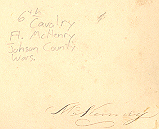 6th
Cavalry
Ft. McKenry
Johson County
Wars.